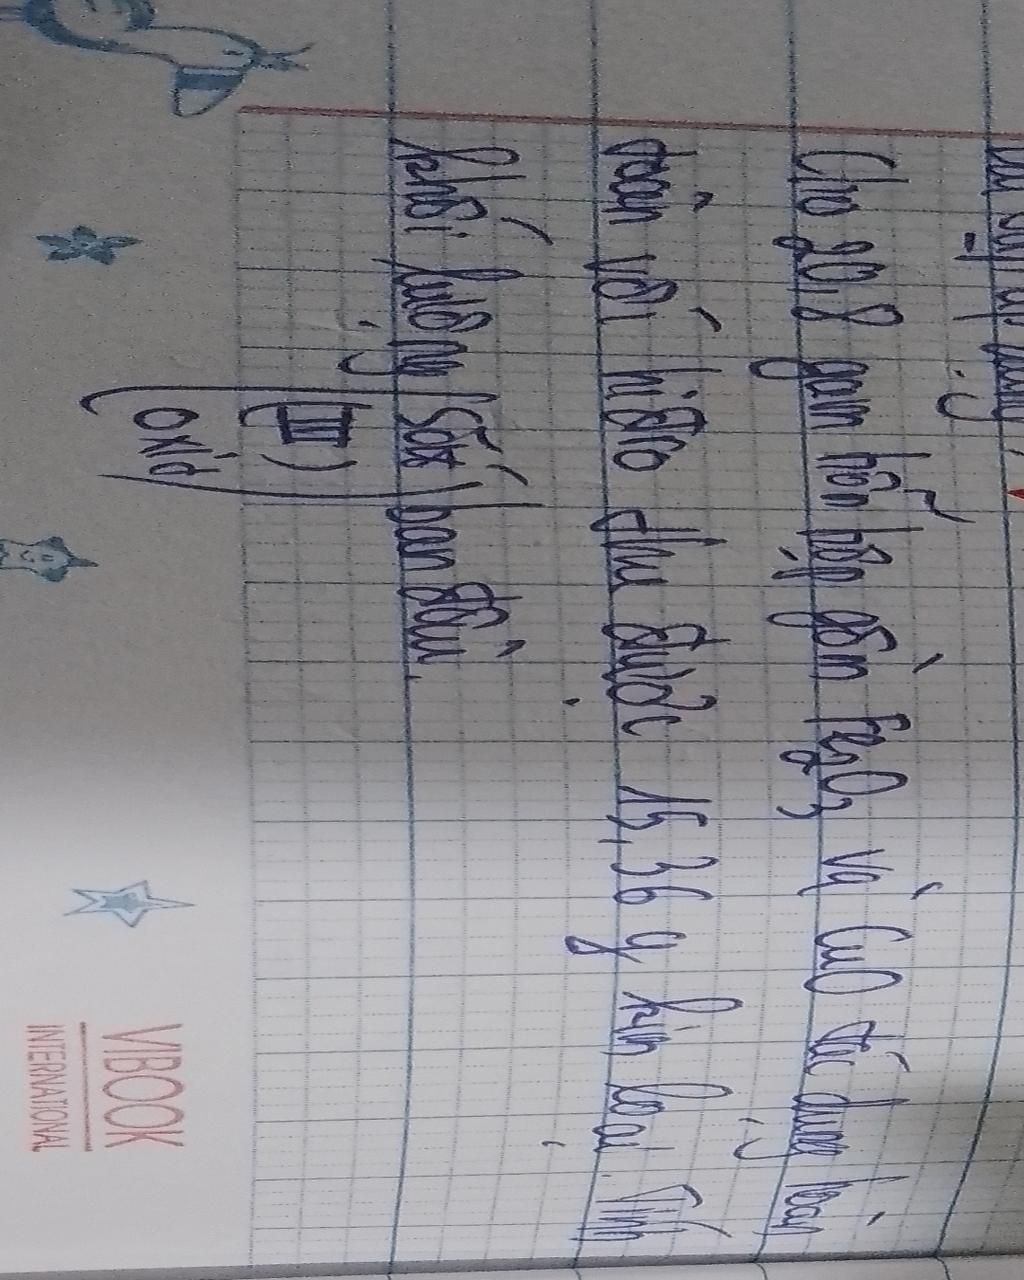 Cho 20,8 gam hỗn hợp gồm Fe2O3 và CuO tác dụng hoàn
toàn với hiđro thu được 15,36 g kim loại. Tính
khối lượng (sắt (III) oxid) ban đầu.
VIBOOK
INTERNATIONAL